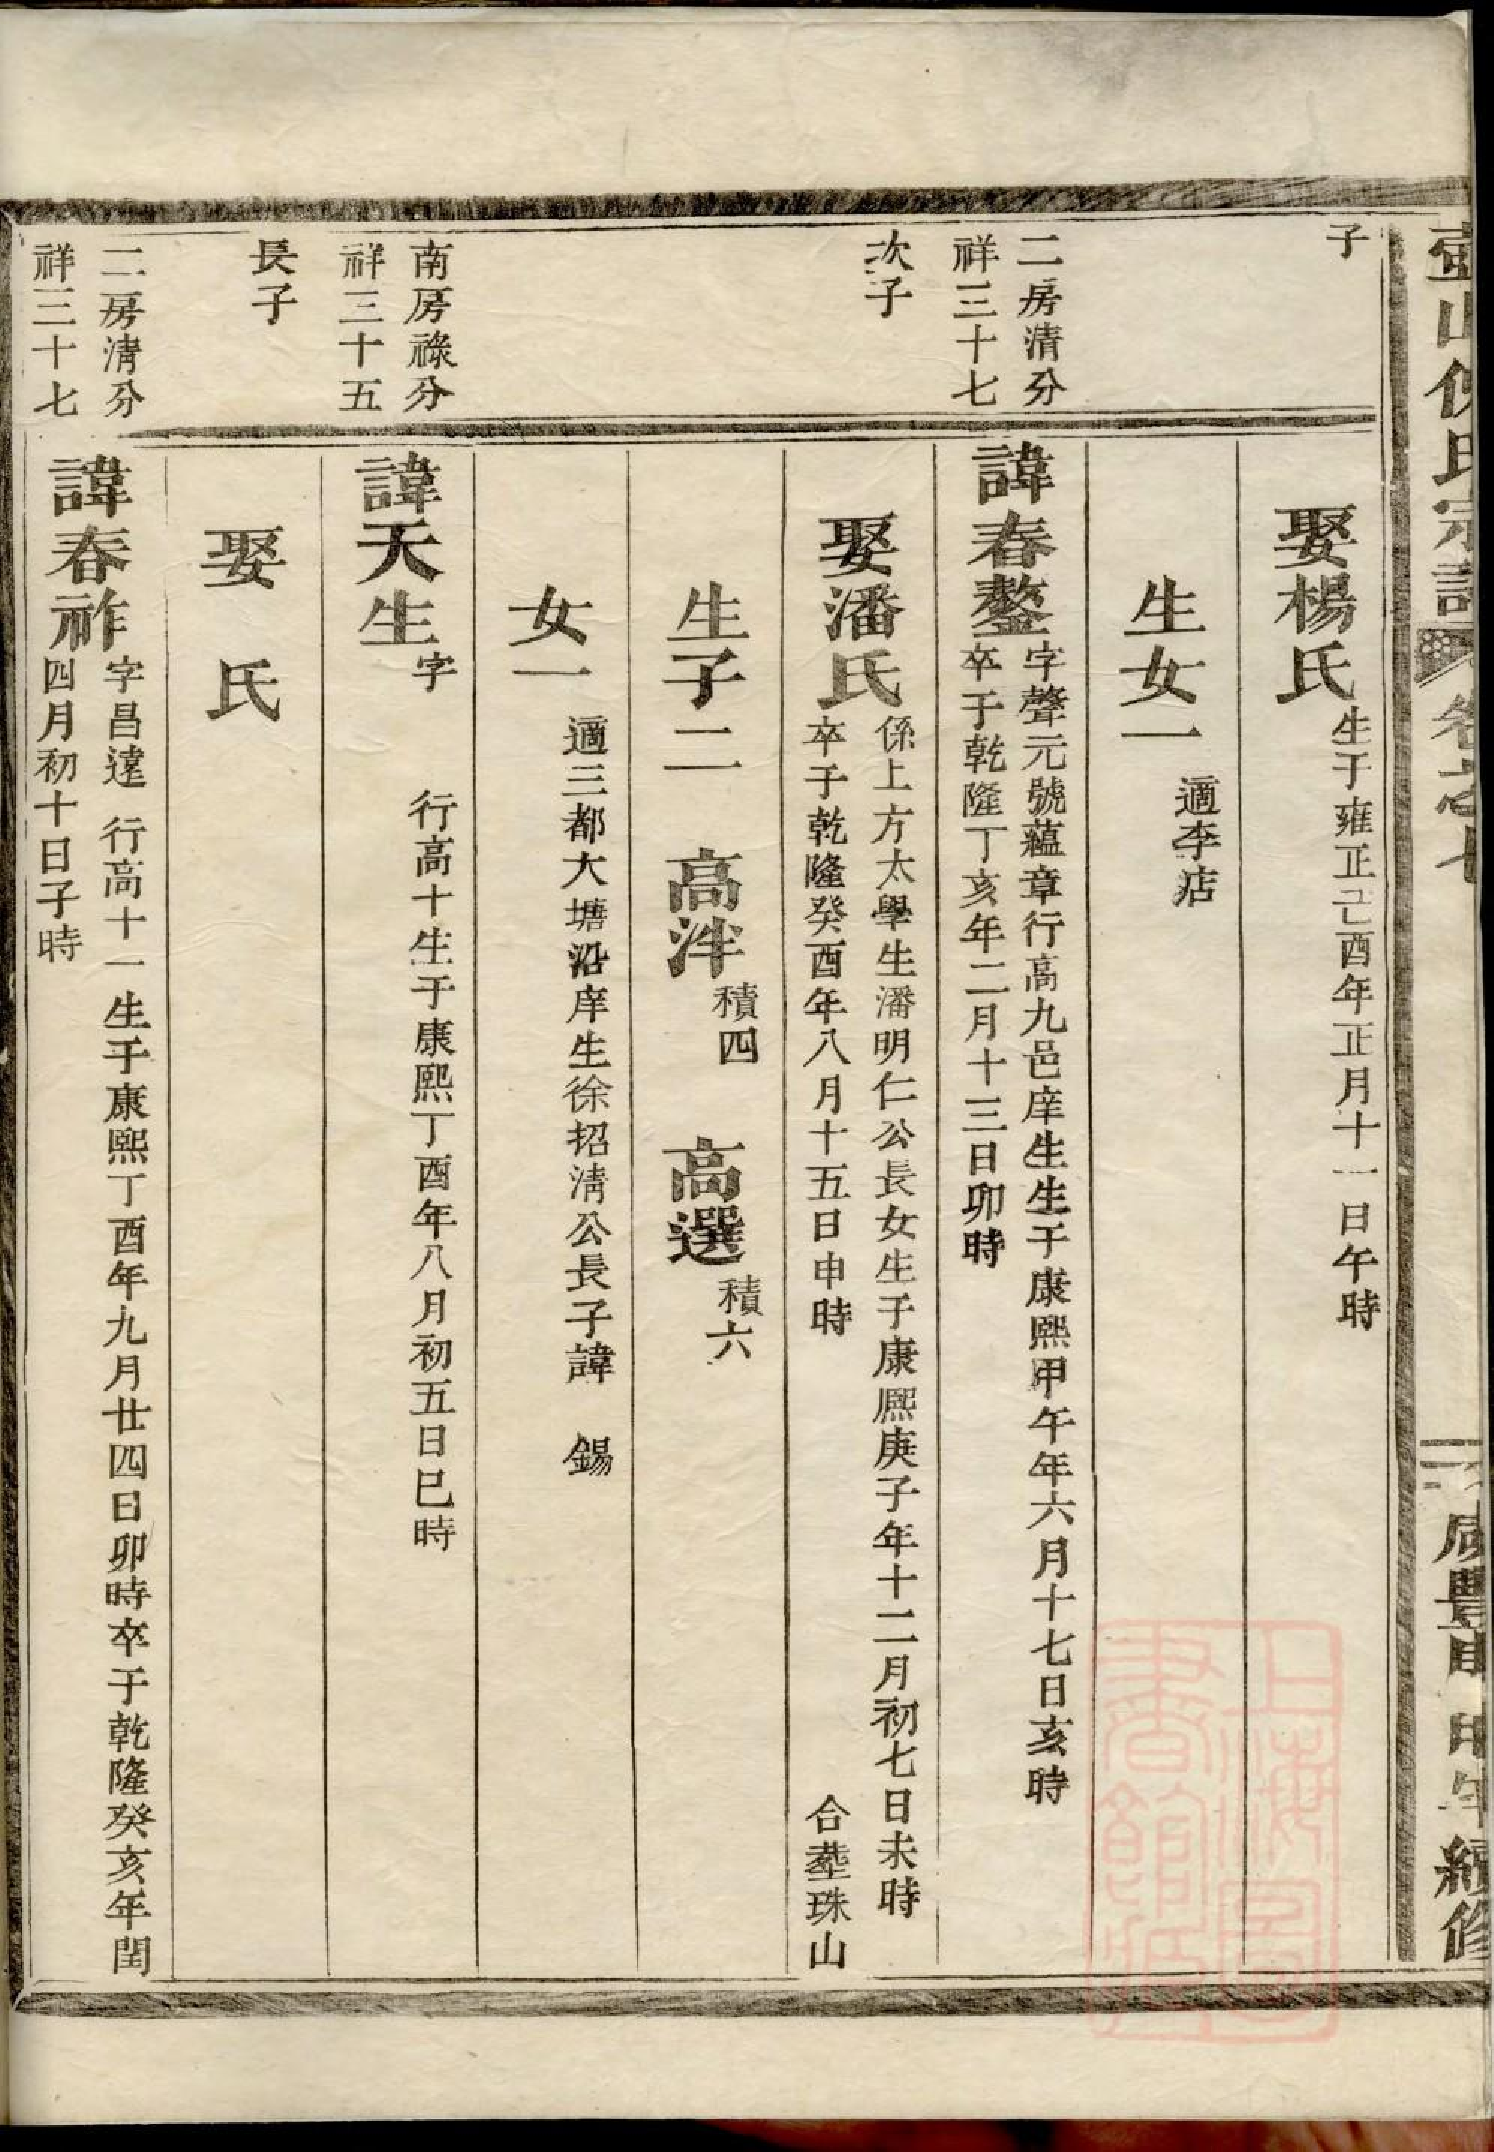 子
娶楊氏
生于雍正己酉年正月十一日午時
生女一
適李店
二房清分
祥三十七
次子
諱春鏊
字聲元號蘊章行高九邑庠生生于康熙甲午年六月十七日亥時
卒于乾隆丁亥年二月十三日卯時
娶潘氏
係上方太學生潘明仁公長女生于康熙庚子年十二月初七日未時
卒于乾隆癸酉年八月十五日申時 合塟珠山
生子二 高泮 積四 高選 積六
女一
適三都大塘沿庠生徐招清公長子諱 錫
南房祿分
祥三十五
長子
諱天生
字 行高十生于康熙丁酉年八月初五日巳時
娶 氏
二房清分
祥三十七
諱春祚
字昌遠 行高十一生于康熙丁酉年九月廿四日卯時卒于乾隆癸亥年閏
四月初十日子時
上海圖
書館藏